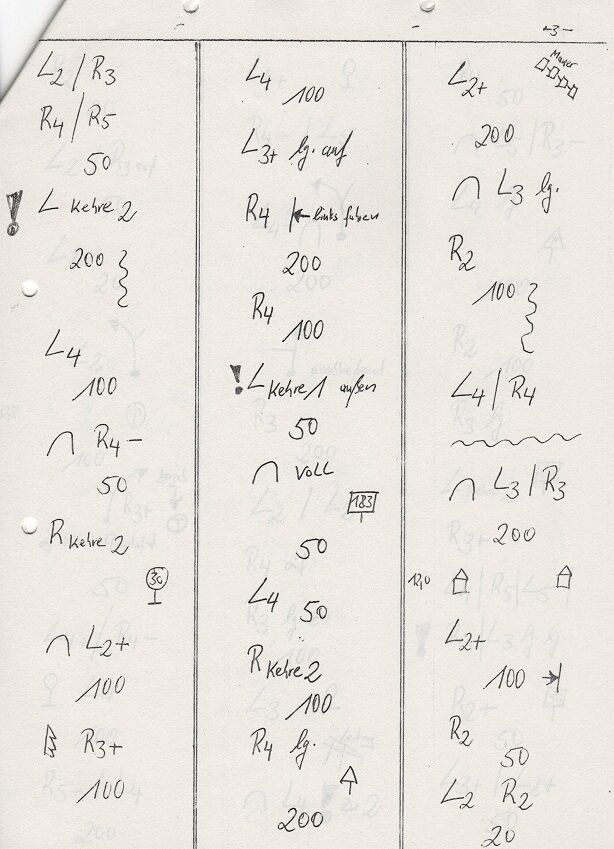 -3-
L2/R3
R4/R5
50
! L Kehre 2
200
L4
100
R4-
50
R Kehre 2
30
L2+
100
R3+
100
L4
100
L3+ lg. auf
R4 links fahren
200
R4
100
! L Kehre 1 außen
50
voll
183
50
L4
50
R Kehre 2
100
R4 lg.
200
Mauer
L2+
200
L3 lg.
R2
100
L4/R4
L3/R3
200
L2+
100
R2
50
L2 R2
20